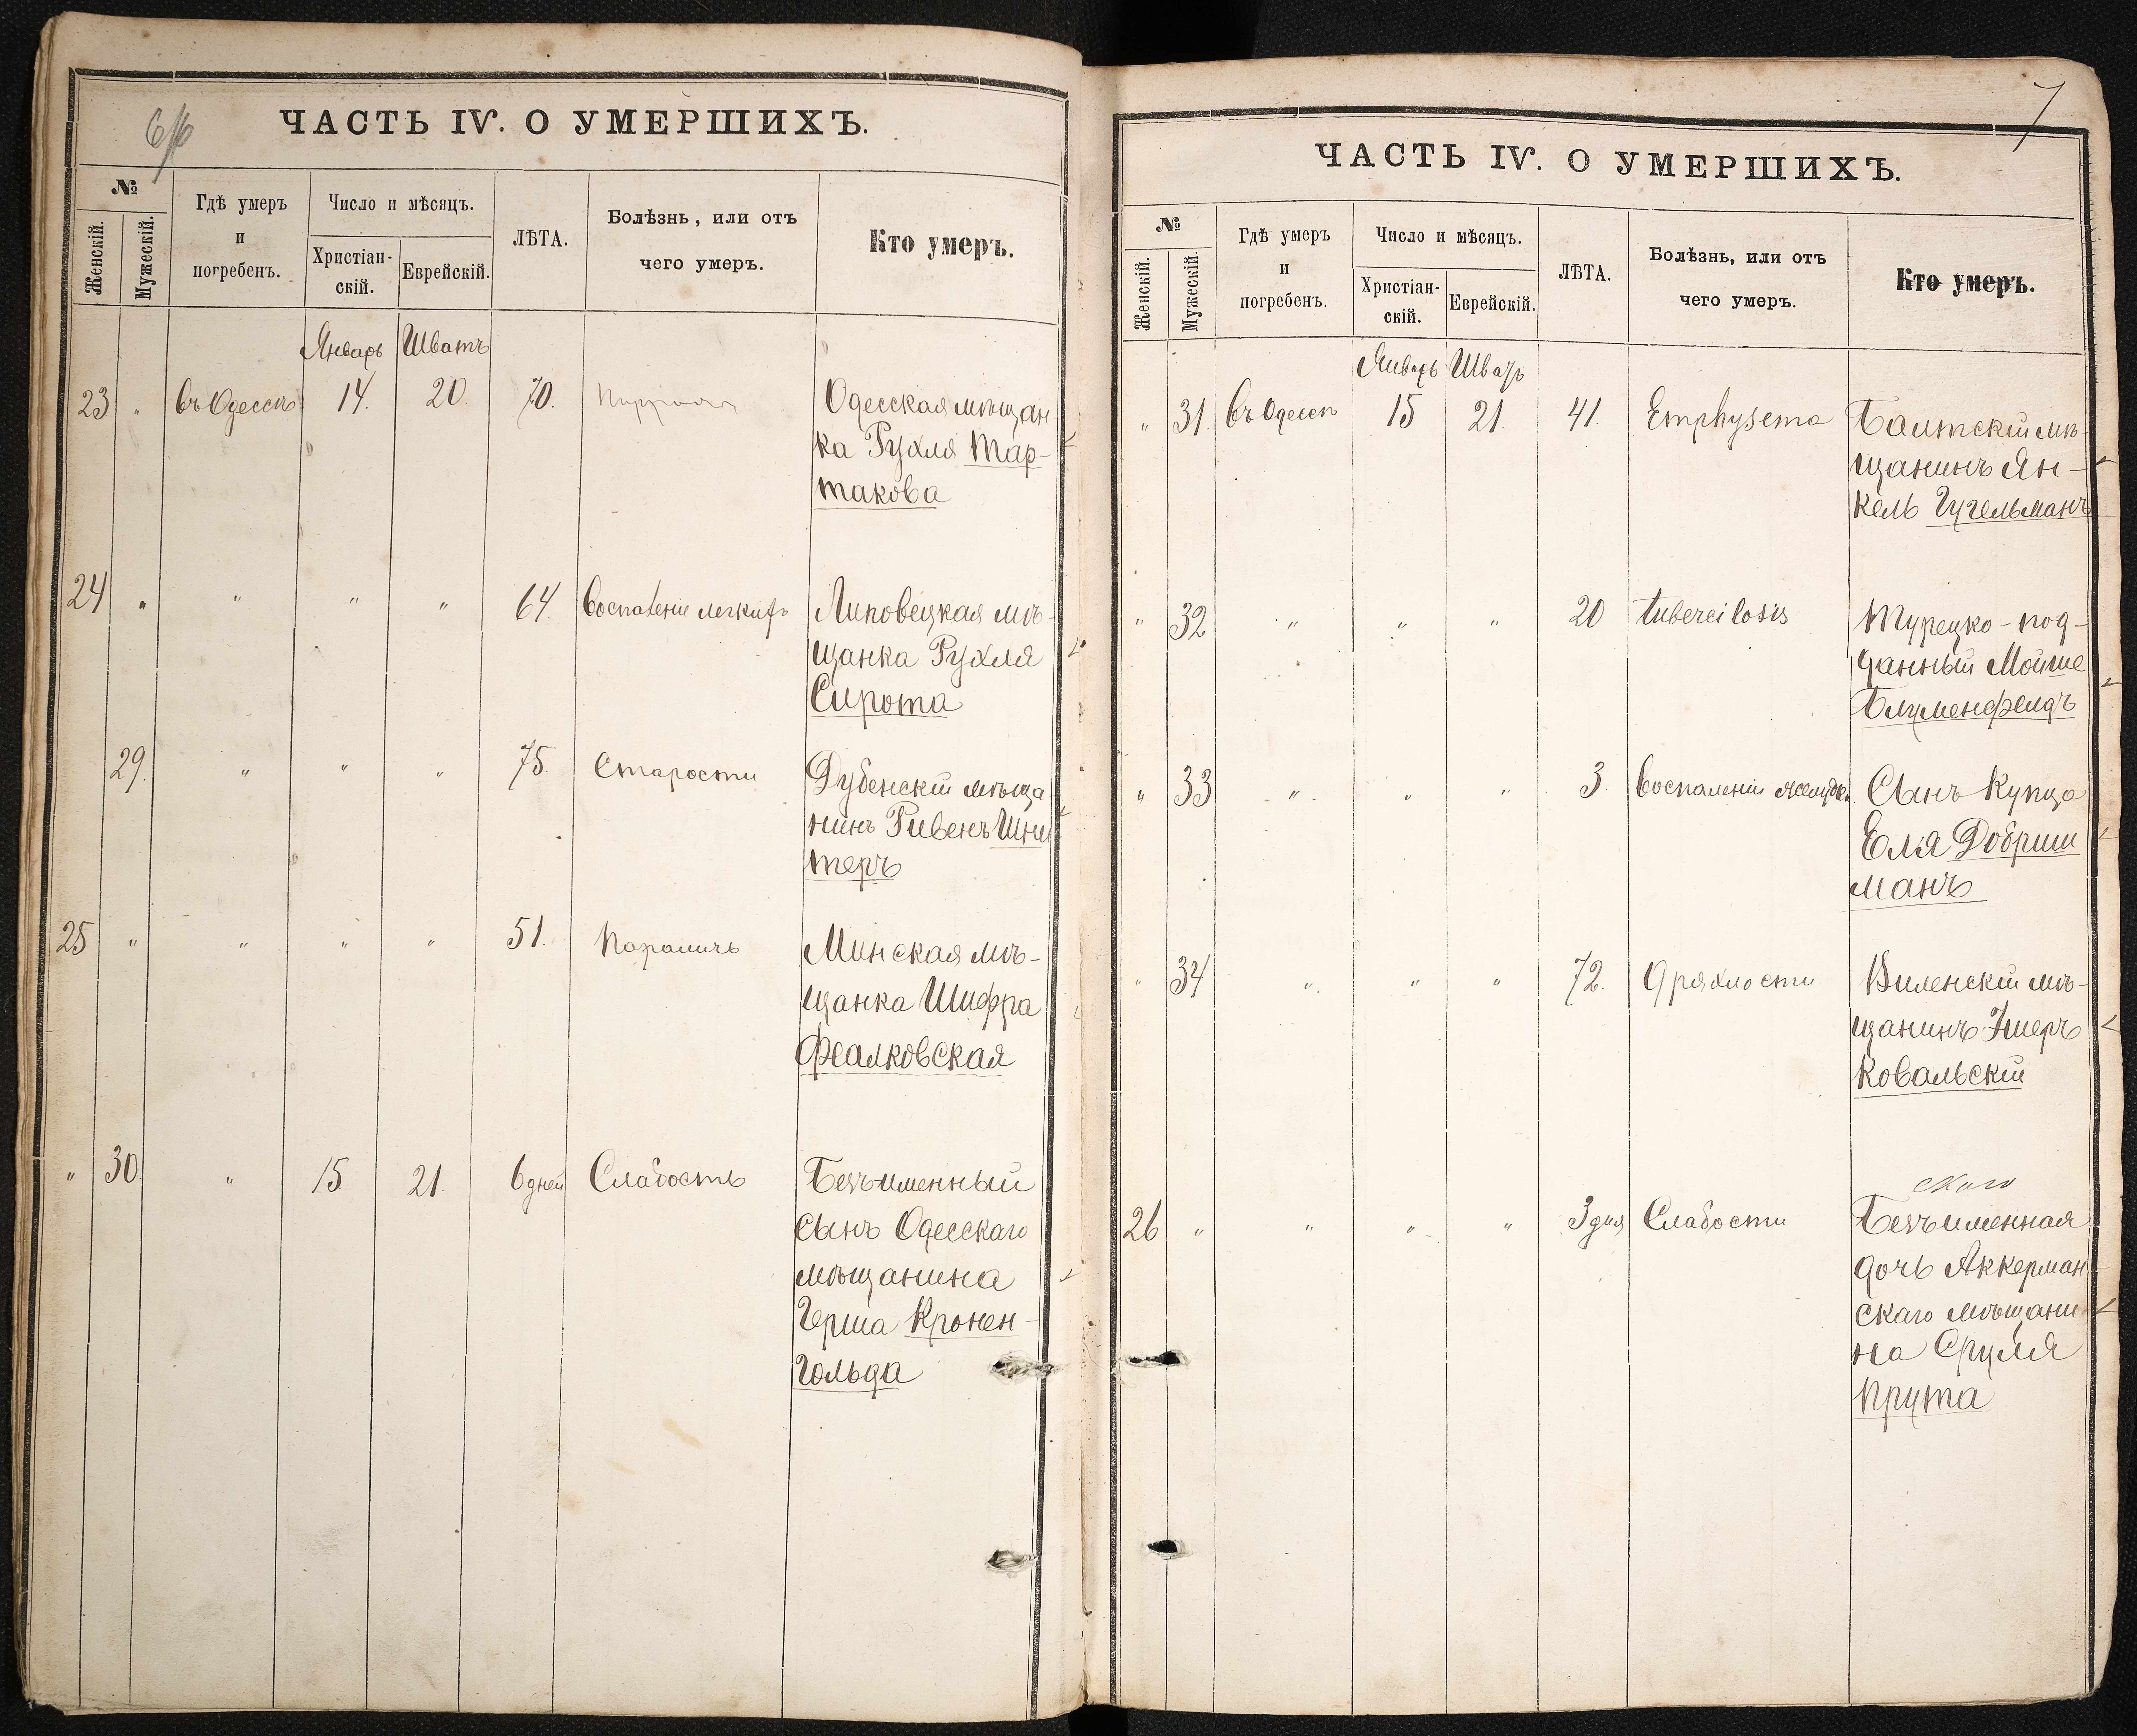 6/6
ЧАСТЬ IV. О УМЕРШИХЪ.
№
Женскій.
Мужескій.
Гдѣ умеръ
и
погребенъ.
Число и мѣсяцъ.
Христіан-
скій.
Еврейскій.
ЛѢТА.
Болѣзнь, или отъ
чего умеръ.
Кто умеръ.
Январь Шватъ
23 " въ Одессѣ 14. 20. 70. Одесская мѣщан
ка Рухля Тар-
такова
24 " " " " 64. Воспаленіе легкихъ Липовецкая мѣ-
щанка Рухля
Сирота
29. " " " 75. Старости Дубенскій мѣща
нинъ Ривенъ Шни
теръ
25 " " " " 51. Параличъ Минская мѣ-
щанка Шифра
Феалковская
" 30. " 15 21. 6 дней Слабость Безъименный
сынъ Одесскаго
мѣщанина
Герша Кронен-
гольда
7
ЧАСТЬ IV. О УМЕРШИХЪ.
№
Женскій.
Мужескій.
Гдѣ умеръ
и
погребенъ.
Число и мѣсяцъ.
Христіан-
скій.
Еврейскій.
ЛѢТА.
Болѣзнь, или отъ
чего умеръ.
Кто умеръ.
Январь Шватъ
" 31. въ Одессѣ 15 21. 41. Emphysema Балтскій мѣ-
щанинъ Ян-
кель Гугельманъ
" 32 " " " 20 tubercilosis Турецко-под-
данный Мойше
Блуменфелдъ
" 33 " " " 3. Воспаленіи желудк. Сынъ Купца
Еля Добриш
манъ
" 34 " " " 72. Дряхлости Виленскій мѣ-
щанинъ
Ковальскій
26 " " " " 3 дня Слабости Безъименная
дочь Аккерман
скаго мѣщани-
на Сруля
Прута